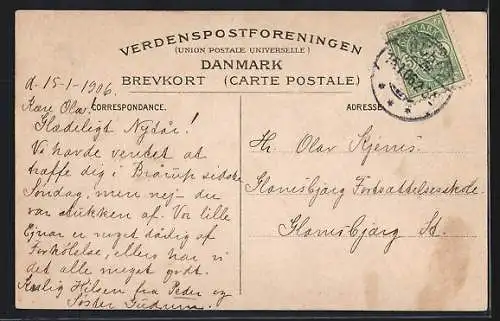 VERDENSPOSTFORENINGEN
(UNION POSTALE UNIVERSELLE)
DANMARK
BREVKORT (CARTE POSTALE)
CORRESPONDANCE.
d. 15-1-1906.
Kære Olav.
Glædeligt Nytår!
Vi havde ventet at
træffe dig i Brørup sidste
Søndag, men nej - du
var stukken af. Vor lille
Ejnar er noget dårlig af
Forkølelse, ellers har vi
det alle meget godt.
Kærlig Hilsen fra Peder og
Søster Gudrun.
ADRESSE
Hr. Olav Stjerns
Glamsbjærg Fortsættelsesskole
Glamsbjærg St.
DANMARK